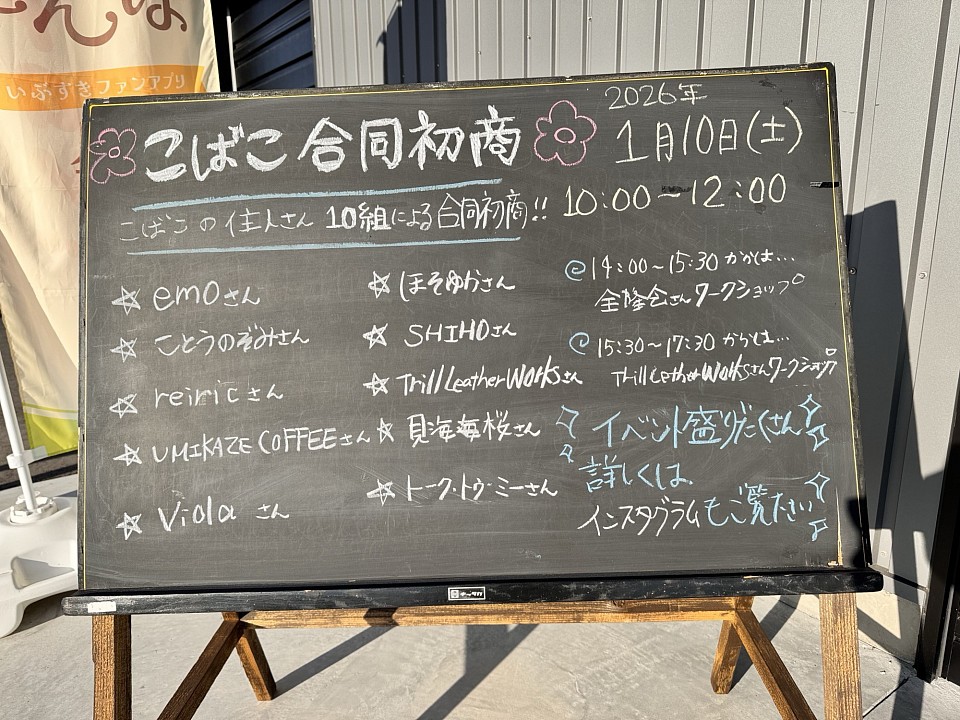 いぶすきファンアプリ
こばこ 合同初商
2026年
1月10日(土)
10:00~12:00
こばこの住人さん 10組による合同初商!!
☆ emoさん
☆ ことうのぞみさん
☆ reiricさん
☆ UMIKAZE COFFEEさん
☆ Viola さん
☆ ほそゆかさん
☆ SHIHOさん
☆ Trill Leather Worksさん
☆ 貝海毎桜さん
☆ トーク・トゥ・ミーさん
14:00~15:30 からは…
さんワークショップ
15:30~17:30 からは…
Trill Leather Worksさんワークショップ
イベント盛りだくさん
詳しくは
インスタグラムもご覧下さい